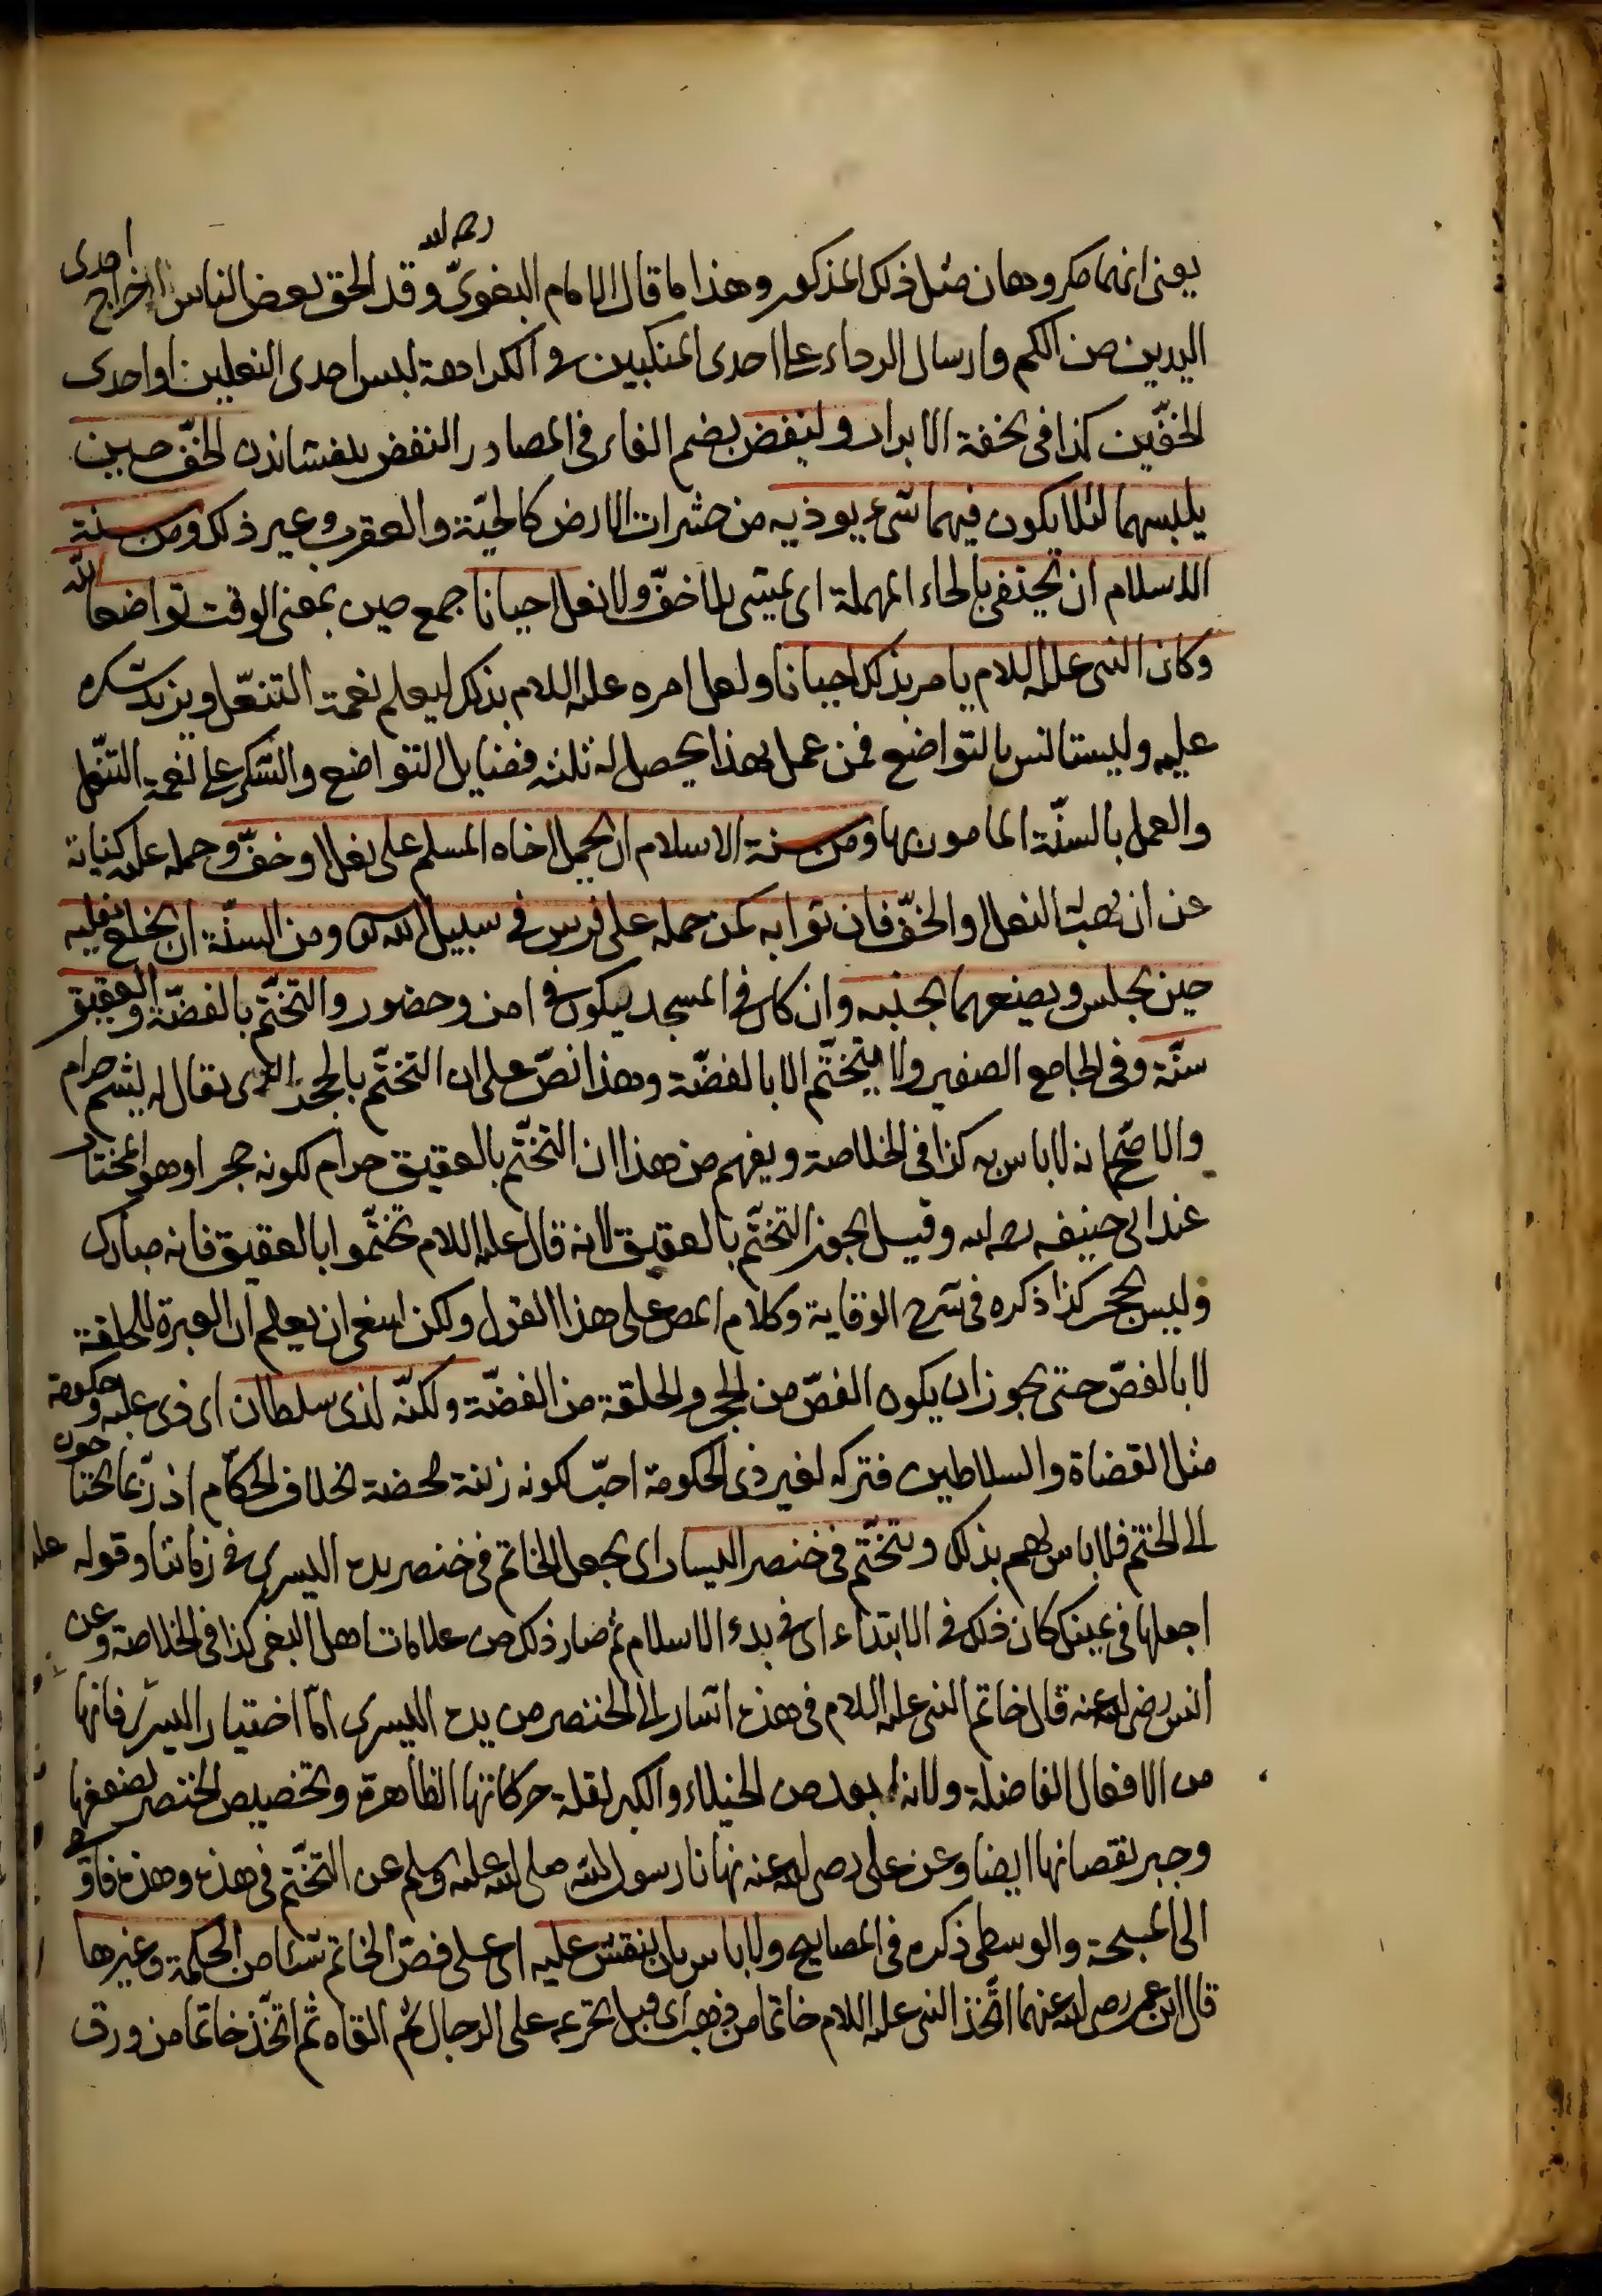 رحمه الله
يعنى انهما مكروهان مثل ذلك المذكور وهذا ما قال الامام البغوىّ وقد الحق بعض الناس اخراج احدى
اليدين من الكم وارسال الرداء على احدى المنكبين فى الكراهة لبس احدى النعلين او احدى
الخفّين كذا فى تحفة الابرار ولينفض بضم الفاء فى المصادر النفض بيفشاندن الخفّ حين
يلبسهما لئلا يكون فيهما شىء يوذيه من حشرات الارض كالحيّة والعقرب وغير ذلك ومن سنة
الاسلام ان يحتفى بالحاء المهملة اى يمشى بلا خفّ ولا نعل احيانا جمع حين بمعنى الوقت تواضعا لله
وكان النبى عليه السلام يامر بذلك احيانا ولعل امره عليه السلام بذلك ليعلم نعمة التنعّل ويزيد شكره
عليه وليستانس بالتواضع فمن عمل بهذا يحصل له ثلثه فضايل التواضع والشكر على نعمة التنعّل
والعمل بالسنّة المامور بها ومن سنة الاسلام ان يحمل اخاه المسلم على نعل او خفّ وحمله عليه كناية
عن ان يهب النعل او الخفّ فان ثوابه كمن حمله على فرس فى سبيل الله ومن السنّة ان يخلع نعليه
حين يجلس ويضعهما بجنبه وان كان فى المسجد ليكون فى امن وحضور والتختّم بالفضّة والعقيق
سنّة وفى الجامع الصغير ولا يتختّم الا بالفضّة وهذا نصّ على ان التختّم بالحجر الذى يقال له يشم حرام
والاصّح انه لا باس به كذا فى الخلاصة ويفهم من هذا ان التختّم بالعقيق حرام لكونه حجرا وهو المختار
عند ابى حنيفه رحمه الله وقيل يجوز التختّم بالعقيق لانه قال عليه السلام تختّموا بالعقيق فانه مبارك
وليس بحجر كذا ذكره فى شرح الوقاية وكلام المص على هذا القول ولكن ينبغى ان يعلم ان العبرة للحلقة
لا بالفصّ حتى يجوز ان يكون الفصّ من الحجر والحلقة من الفضّة ولكنّه لذى سلطان اى ذى غلبه وحكومة
مثل القضاة والسلاطين فتركه لغير ذى الحكومة احبّ لكونه زينة محضة بخلاف الحكّام اذ ربّما يحتاجون
الى الختم فلا باس لهم بذلك ويتختّم فى خنصر اليسار اى يجعل الخاتم فى خنصر يده اليسرى فى زماننا وقوله عليه
اجعلها فى يمينك كان ذلك فى الابتداء اى فى بدء الاسلام ثم صار ذلك من علامات اهل البغى كذا فى الخلاصة وعن
انس رضى الله عنه قال خاتم النبى عليه السلام فى هذه اشار الى الخنصر من يده اليسرى امّا اختيار اليسرى فانها
من الافعال الفاضلة ولانه ابعد من الخيلاء والكبر لقلة حركاتها الظاهرة وتخصيص الخنصر لضعفها
وجبر نقصانها ايضا وعن على رضى الله عنه نهانا رسول الله صلى الله عليه وسلم عن التختّم فى هذه وهذه فاومى
الى المسبحة والوسطى ذكره فى المصابيح ولا باس بان ينقش عليه اى على فصّ الخاتم شيئا من الحكمة وغيرها
قال ابن عمر رضى الله عنهما اتّخذ النبى عليه السلام خاتما من ذهب اى قبل تحريمه على الرجال ثم القاه ثم اتّخذ خاتما من ورق